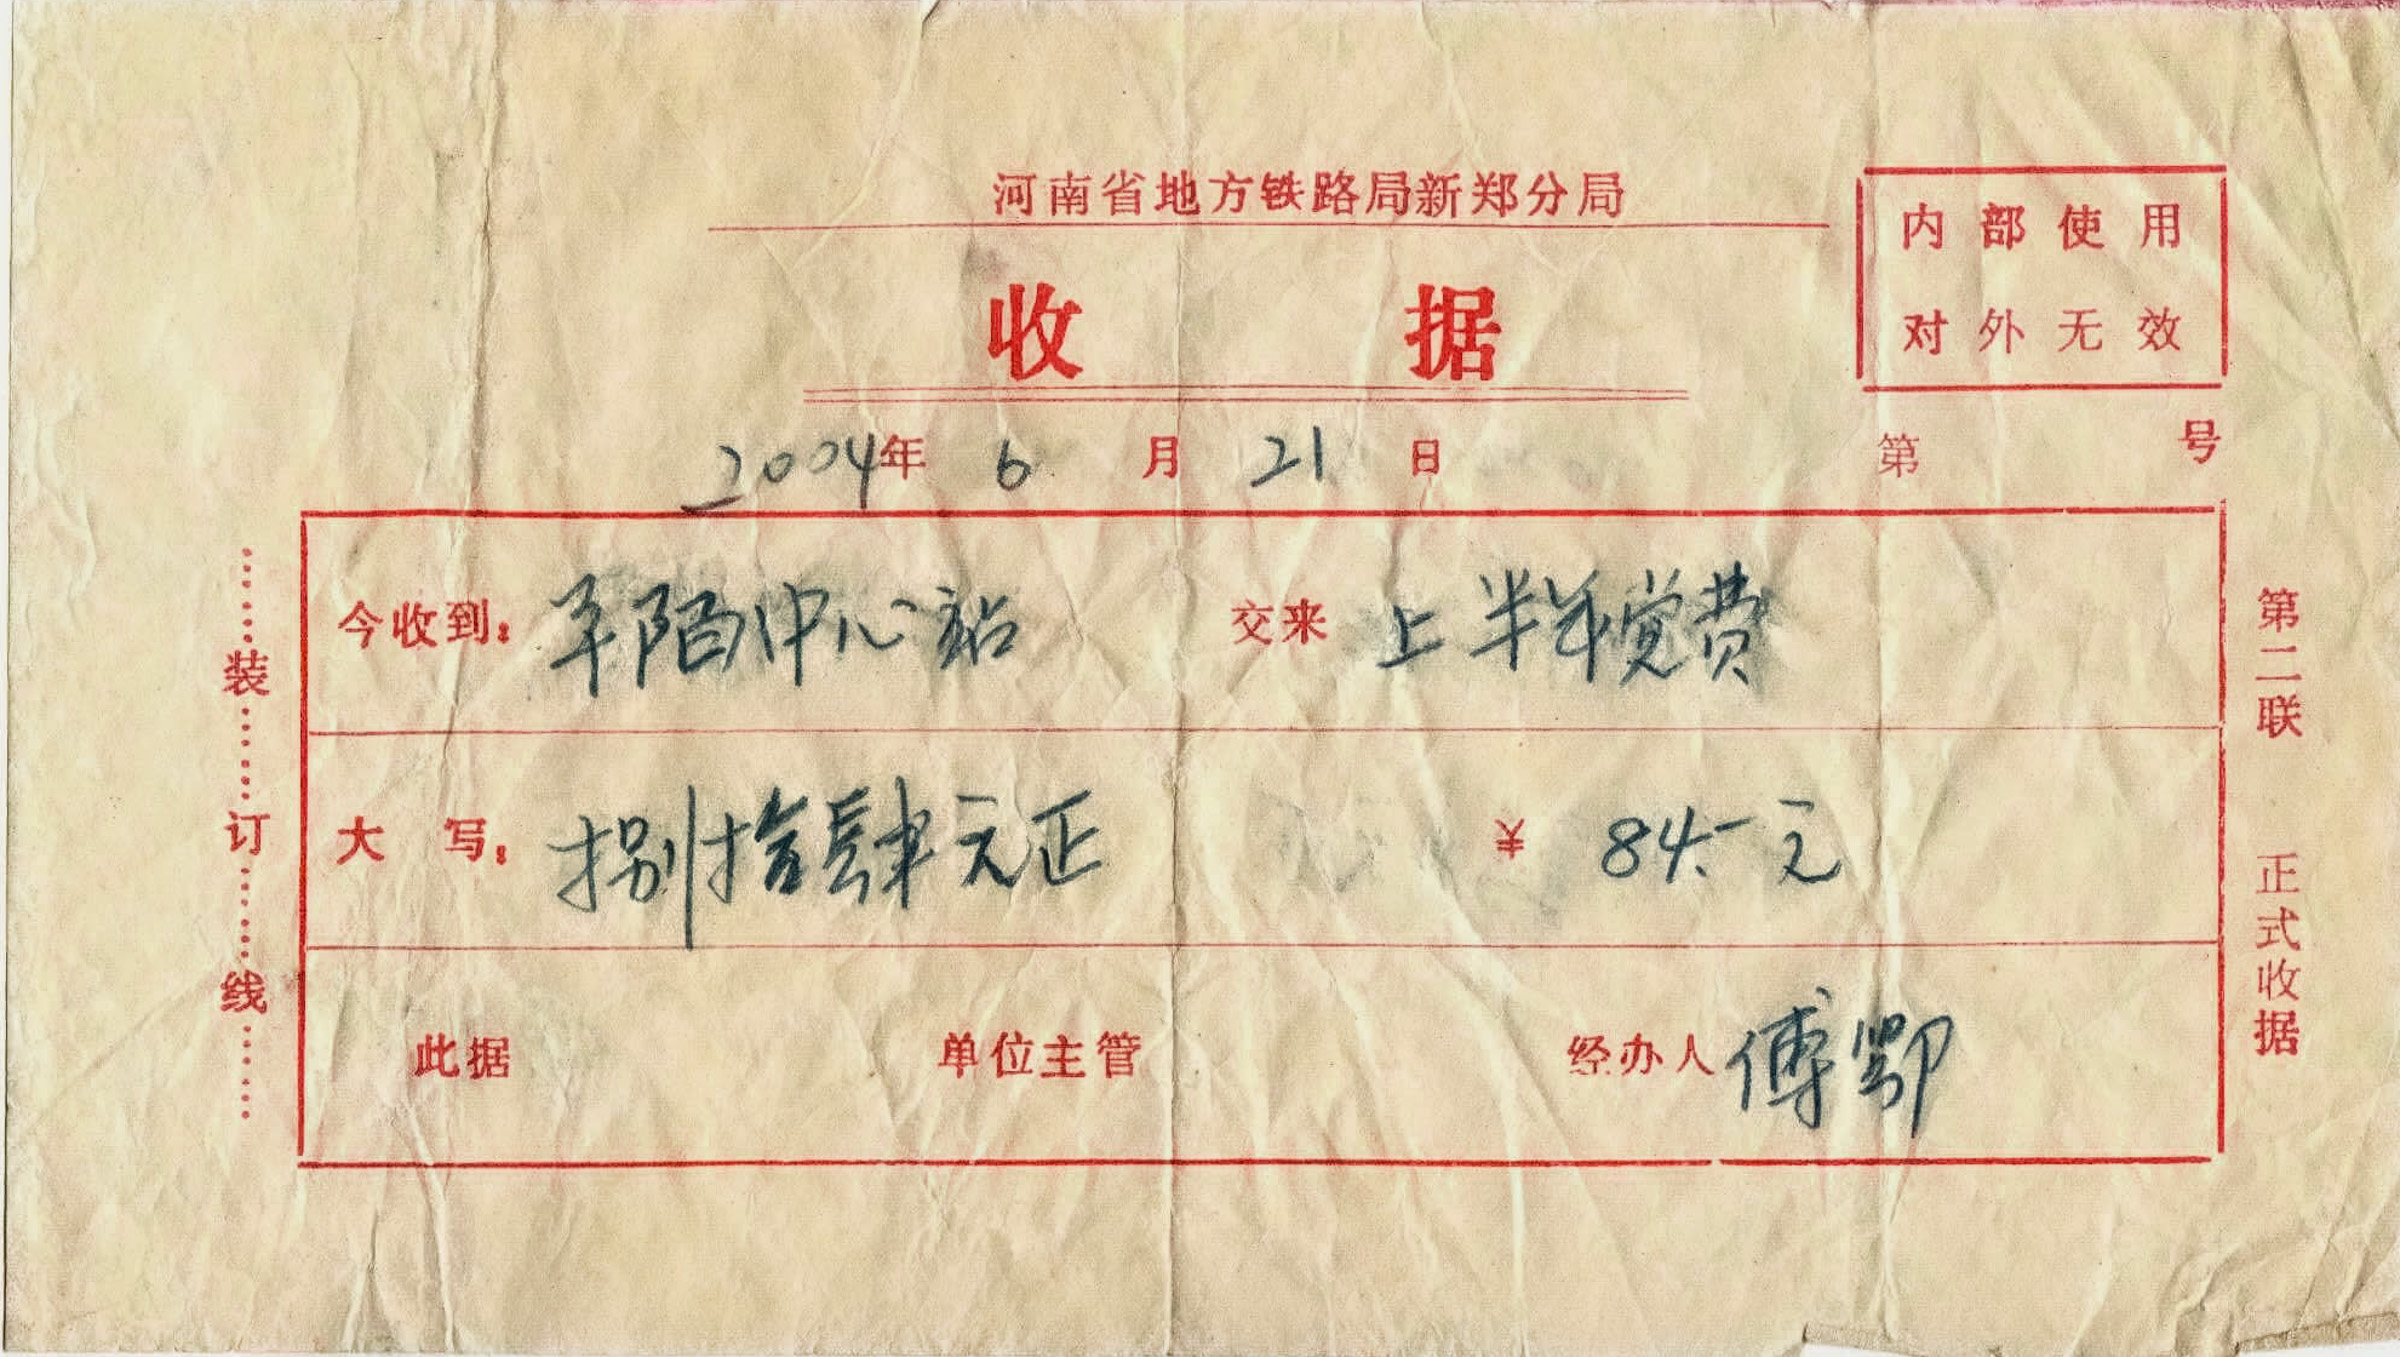 河南省地方铁路局新郑分局
内部使用
对外无效
收据
2004年 6 月 21 日
第 号
今收到：平陌中心站 交来 上半年党费
大写：捌拾肆元正 ¥ 84.-元
此据 单位主管 经办人 傅鄂
装订线
第二联 正式收据